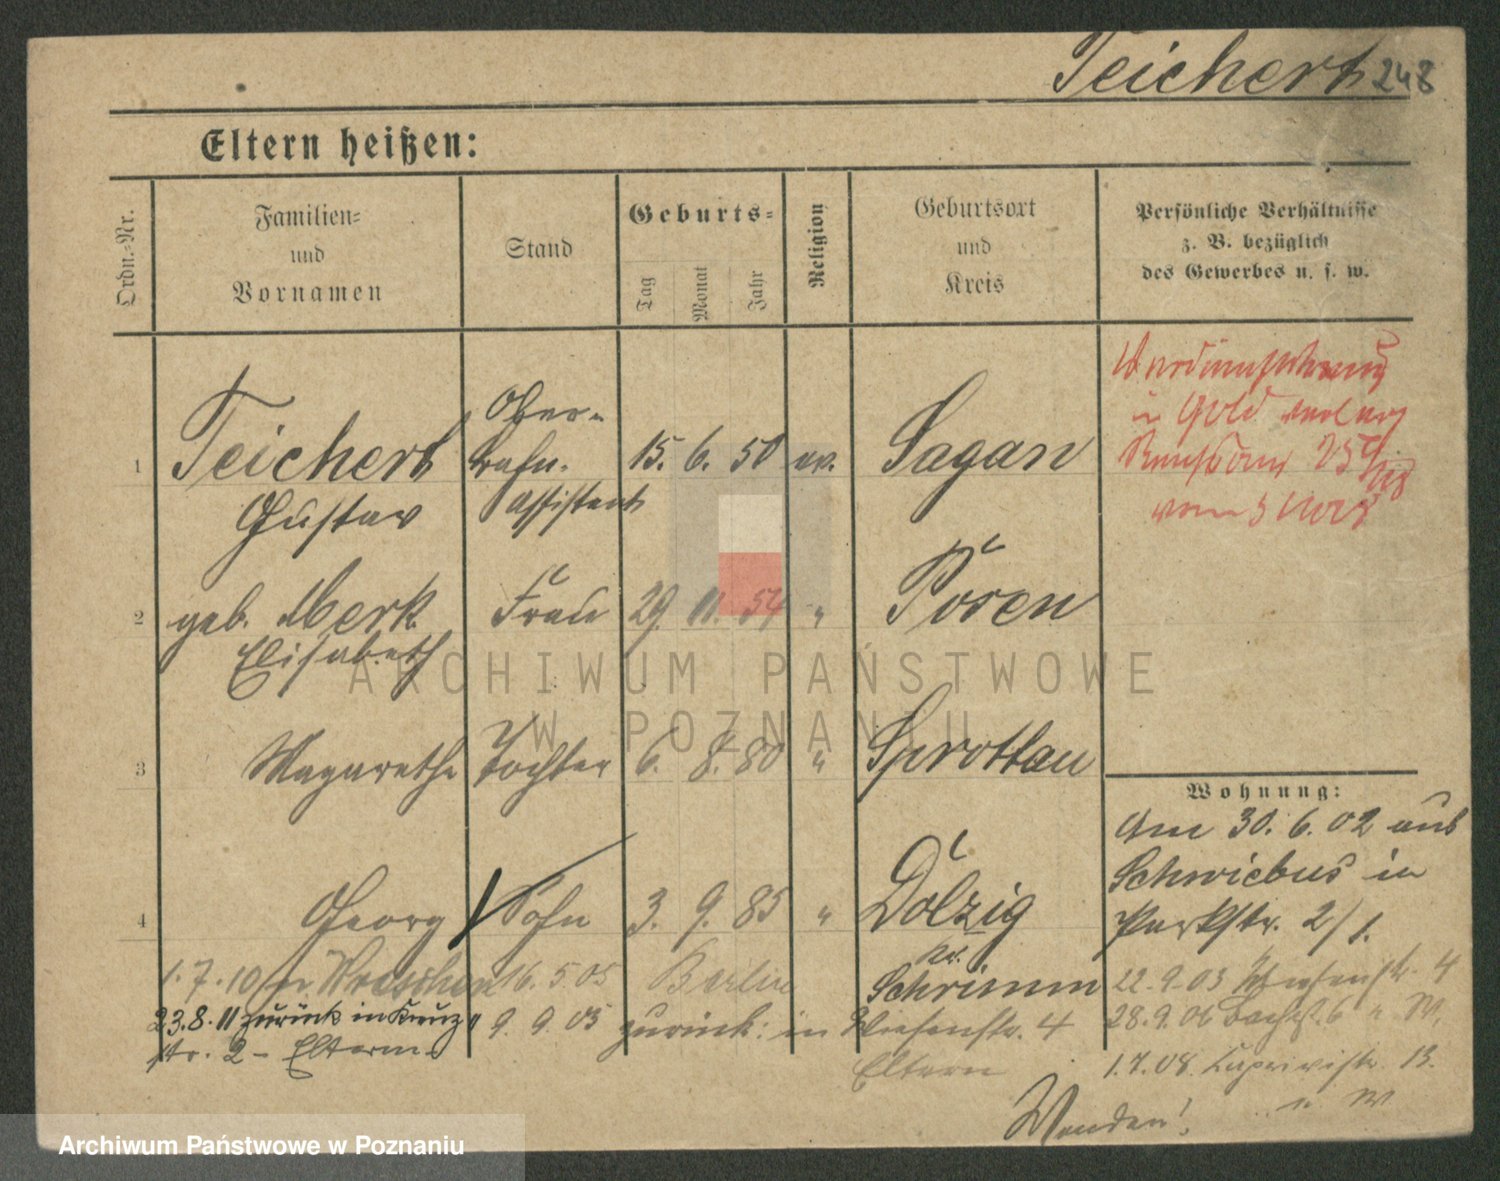 Teichert 248
Eltern heißen:
Ordn.-Nr.
Familien-
und
Vornamen
Stand
Geburts-
Tag
Monat
Jahr
Religion
Geburtsort
und
Kreis
Persönliche Verhältnisse
z. B. bezüglich
des Gewerbes u. s. w.
1 Teichert Ober- 15. 6. 50 ev. Sagan
Gustav Bahn-
assistent
in Gold
vom 5
2 geb. Merk Frau 29. 11. 54 " Posen
Elisabeth
3 Magarethe Tochter 6. 8. 80 " Sprottau
4 Georg Sohn 3. 9. 85 " Dolzig
Kr.
Schrimm
Wohnung:
Am 30. 6. 02 aus
Schwiebus in
Parkstr. 2/I.
22.9.03 Wiesenstr. 4
28.9.06 Bachst. 6 u. W.
1.7.08. Caprivistr. 13.
u W
1.7.10 n. Wreschen 16. 5 05 Berlin
23.8.11 zurück in Kreuz
str. 2 - Eltern
9. 9. 05 zurück: in Wiesenstr. 4
Eltern
Wenden!
ARCHIWUM PAŃSTWOWE
W POZNANIU
Archiwum Państwowe w Poznaniu